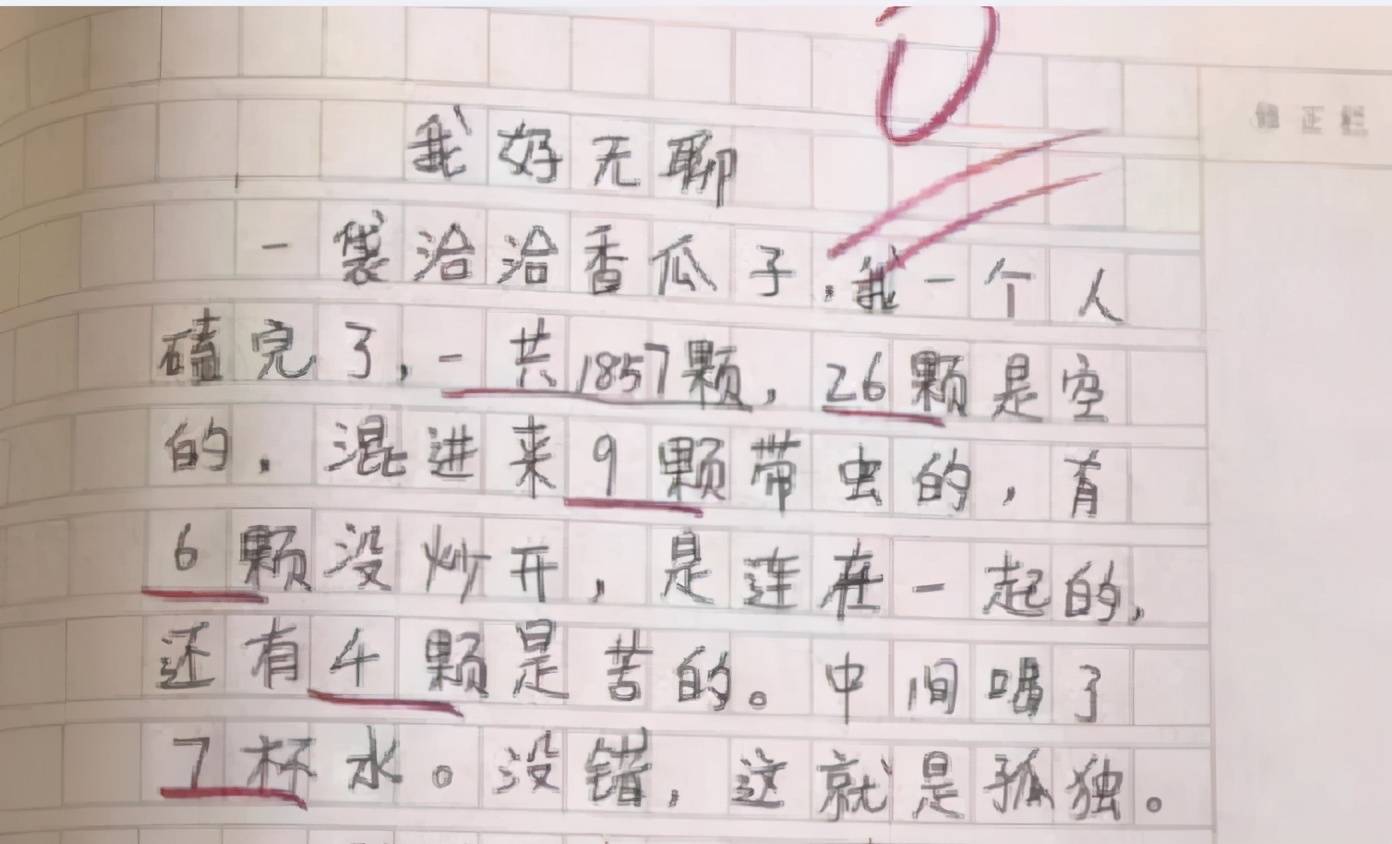 修正栏
我好无聊
一袋洽洽香瓜子,我一个人
嗑完了,一共1857颗,26颗是空
的,混进来9颗带虫的,有
6颗没炒开,是连在一起的,
还有4颗是苦的。中间喝了
7杯水。没错,这就是孤独。